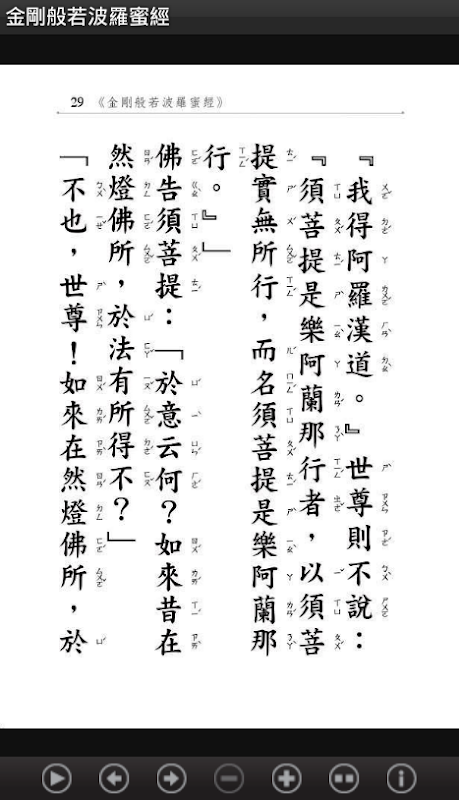 金剛般若波羅蜜經
29 《金剛般若波羅蜜經》
『我得阿羅漢道。』世尊則不說：
『須菩提是樂阿蘭那行者，以須菩
提實無所行，而名須菩提是樂阿蘭那
行。』」
佛告須菩提：「於意云何？如來昔在
然燈佛所，於法有所得不？」
「不也，世尊！如來在然燈佛所，於